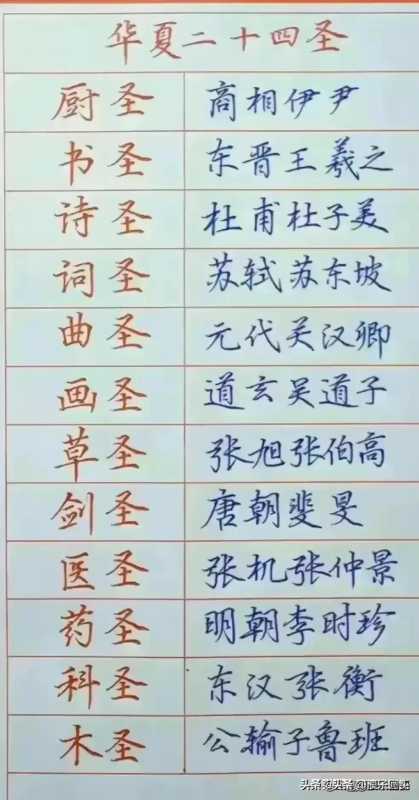 华夏二十四圣
厨圣 商相伊尹
书圣 东晋王羲之
诗圣 杜甫杜子美
词圣 苏轼苏东坡
曲圣 元代关汉卿
画圣 道玄吴道子
草圣 张旭张伯高
剑圣 唐朝斐旻
医圣 张机张仲景
药圣 明朝李时珍
科圣 东汉张衡
木圣 公输子鲁班
头条